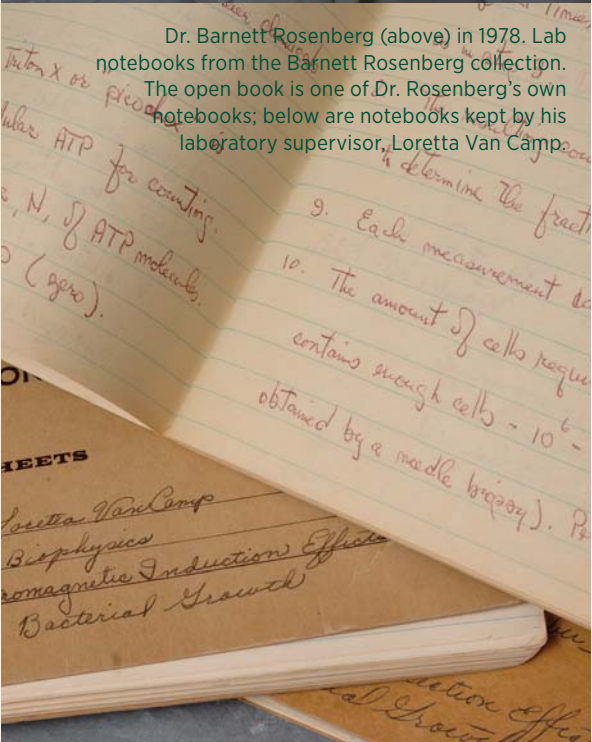 Dr. Barnett Rosenberg (above) in 1978. Lab
notebooks from the Barnett Rosenberg collection.
The open book is one of Dr. Rosenberg's own
notebooks; below are notebooks kept by his
laboratory supervisor, Loretta Van Camp.
Triton X or
ATP for counting.
, N, of ATP molecules.
(zero).
determine the
9. Each measurement
10. The amount of cells
contains enough cells - 10⁶ -
obtained by a needle biopsy).
HEETS
Loretta VanCamp
Biophysics
romagnetic Induction Effects
Bacterial Growth